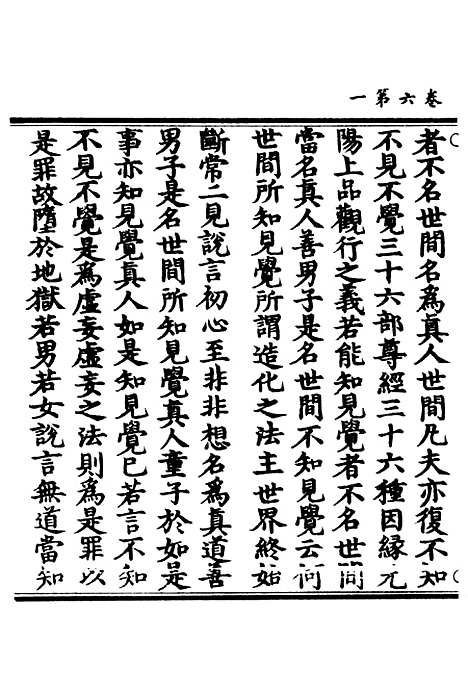 卷六第一
者不名世間名爲真人世間凡夫亦復不知
不見不覺三十六部尊經三十六種因緣元
陽上品觀行之義若能知見覺者不名世間
當名真人善男子是名世間不知見覺云何
世間所知見覺所謂造化之法主世界終始
斷常二見說言初心至非非想名爲真道善
男子是名世間所知見覺真人童子於如是
事亦知見覺真人如是知見覺已若言不知
不見不覺是爲虛妄虛妄之法則爲是罪以
是罪故墮於地獄若男若女說言無道當知